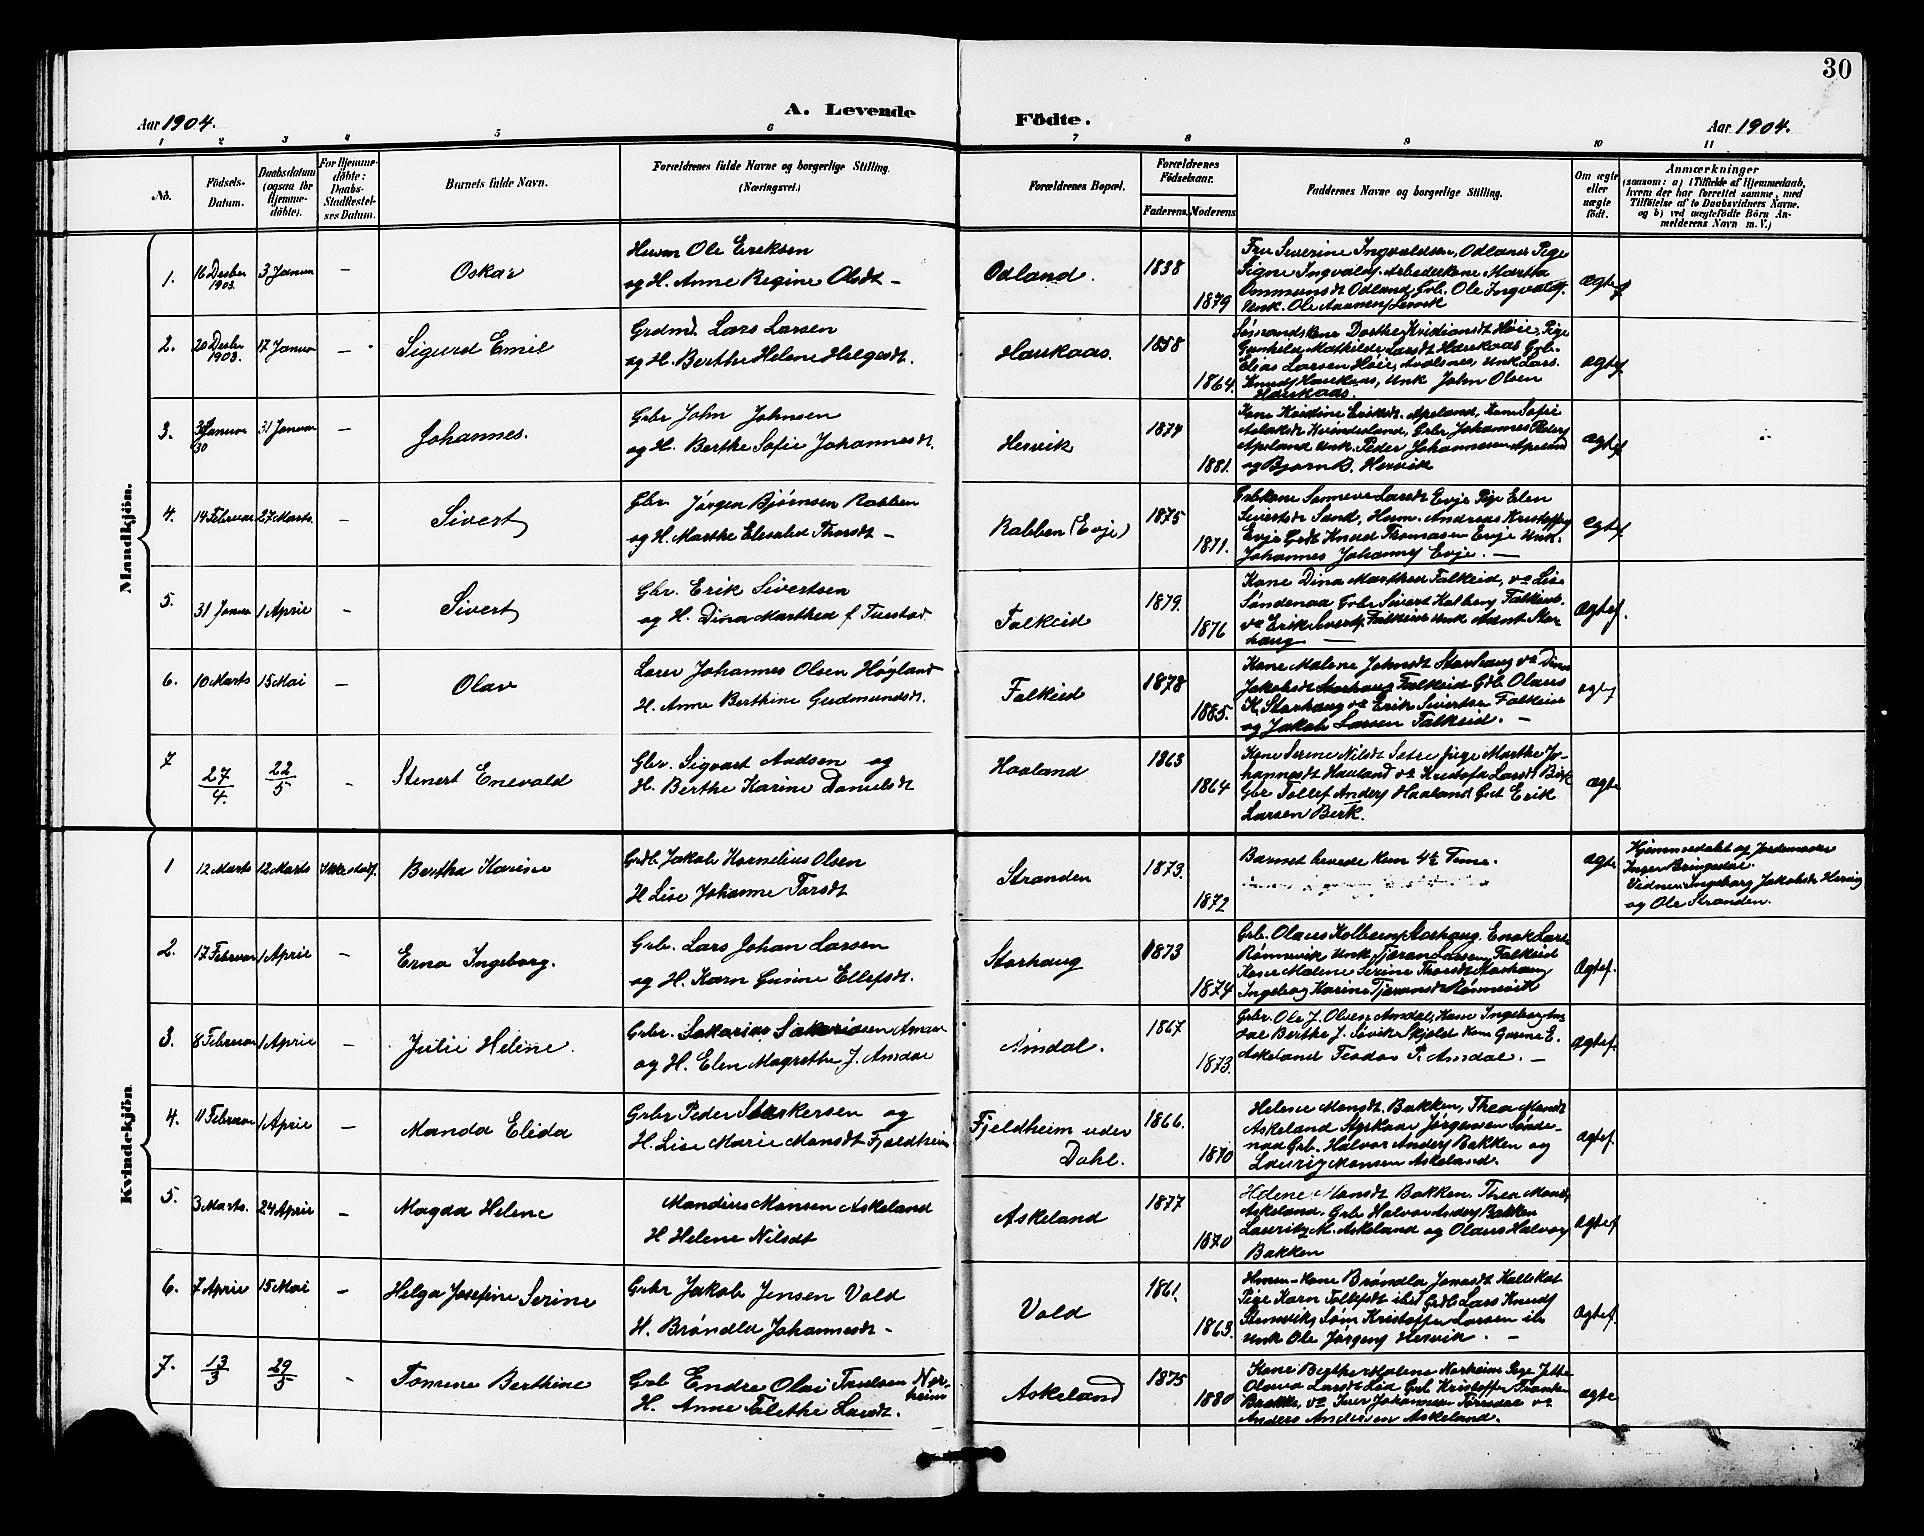 30
Aar 1904.
A. Levende
Födte.
Aar 1904.
1 2 3 4 5 6 7 8 9 10 11
No.
Födsels-
Datum.
Daabsdatum
(ogsaa for
Hjemme-
döbte).
For Hjemme-
döbte:
Daabs-
Stadfæstel-
ses Datum.
Barnets fulde Navn.
Forældrenes fulde Navne og borgerlige Stilling.
(Næringsvei.)
Forældrenes Bopæl.
Forældrenes
Födselsaar.
Faderens.
Moderens.
Faddernes Navne og borgerlige Stilling.
Om ægte
eller
uægte
födt.
Anmærkninger
(saasom: a) i Tilfælde af Hjemmedaab,
hvem der har forrettet samme, med
Tilföielse af to Daabsvidners Navne,
og b) ved uægtefödte Börn An-
melderens Navn m. V.)
Mandkjön.
1. 16 Decbr 1903. 3 Januar — Oskar
Husm Ole Eriksen
og H. Anne Regine Olsdt —
Odland. 1838 1879
Fru Severine Ingvaldsen, Odland Pige
Signe Ingvalds. Arbeiderkone Martha
Ommundsdt Odland, Grb. Ole Ingvalds.
Unk. Ole Aanensen Lervik
ægtef
2. 20 Decbr 1903. 17 Januar — Sigurd Emil
Grdmd. Lars Larsen
og H. Berthe Helene Helgesdt
Haukaas. 1858 1864.
Gunhild Mathilde Larsdt Haukaas Grb.
Elias Larsen Høie, Avalsnes, Unk Lars
Knuds Haukaas, Unk John Olsen
Haukaas.
ægtef
3. 3 Januar 31 Januar — Johannes.
Grbr John Johnsen
og H. Berthe Sofie Johannesdt
Hervik 1874 1881.
Kone Kristine Eriksdt. Apeland, Kone Sofie
Aslaksdt Kvinnesland, Grbr Johannes Peders
Apeland Unk. Peder Johannesen Apeland
og Bjørn B. Hervik
ægtef
4. 14 Februar 27 Marts. — Sivert
Gbr. Jørgen Bjørnsen Rabben
og H. Marthe Elisabet Thorsdt —
Rabben (Evje) 1875 1871.
Grbkone Sanneve Larsdt Evje Pige Elen
Sivertsdt Sand, Husm. Andreas Kristoffers
Evje Grdt Knud Thomasen Evje Unk.
Johannes Johannes Evje. —
egtef.
5. 31 Januar 1 April — Sivert
Gbr. Erik Sivertsen
og H. Dina Marthea f. Tuestad.
Falkeid 1879. 1876
Kone Dina Marthea Falkeid, do Lise
Søndenaa Grbr Sivert Kolbens Falkeid.
do Erik Siverts. Falkeid Unk Aanet Stor
haug —
Ægtef.
6. 10 Marts 15 Mai — Olav
Lærer Johannes Olsen Høgland
H. Anne Berthine Gudmundsdt.
Falkeid 1878 1885.
Kone Malene Johnsdt Storhaug do Dina
Jakobsdt Storhaug Falkeid Gdb Olaus
K. Storhaug do Erik Sivertsen Falkeid
og Jakob Larsen Falkeid. —
ægtef
7 27/4. 22/5 — Stenert Enevald
Gbr. Sigvart Aadsen og
H. Berthe Karine Danielsdt
Haaland 1863 1864
Kone Serine Nilsdt Sætre Pige Marthe Jo-
hannesdt Haaland do Kristofa Larsdt Birk
Gbr Tollef Anders Haaland Gst Erik
Larsen Berk.
ægte
Kvindekjön
1 12 Marts 12 Marts Ikke stadf. Bertha Karine
Grdb Jakob Kornelius Olsen
H Lise Johanne Tarsdt
Stranden 1873. 1872
Barnet levede kun 4re Time.
ægte
Hjemmedøbt af Jordemoder
Inger Bringedal
Vidner: Ingeborg Jakobsdt Hervig
og Ole Stranden.
2. 17 Februar 1 April — Erna Ingeborg.
Grb. Lars Johan Larsen
og H. Karn Gurine Ellefsdt.
Storhaug 1873 1874
Grb. Olaus Kolbens Storhaug, Enok Lars.
Rønnevik Unk, Tjæran Larsen Falkeid
Kone Malene Serine Thorsdt Storhaug
Ingeborg Karine Tjæransdt Rønnevik
Ægtef.
3. 8 Februar 1 April — Julie Helene.
Grbr. Sakarias Sakariasen Amdal
og H. Elen Magrethe J. Amdal
Amdal. 1867 1873.
Grbr. Ole J. Olsen Amdal, Kone Ingeborg Am
dal Berthe J. Søvik Skjold Kone Gurine E.
Askeland Teodor P. Amdal. —
Ægtef.
4. 11 Februar 1 April — Manda Elida
Grbr Peder Størkersen og
H. Lise Marie Monsdt Fjeldheim
Fjeldheim uder
Dahl. 1866. 1870
Helene Monsdt. Bakken, Thea Monsdt
Askeland Styrkaar Jørgensen Sønde-
naa Grb. Halvor Anders Bakken og
Lauritz Monsen Askeland.
Ægtef.
5. 3 Marts. 24 April — Magda Helene
Mandius Monsen Askeland
H Helene Nilsdt
Askeland 1877 1870
Helene Monsdt Bakken, Thea Monsd,
Askeland. Grb Halvor Anders Bakken
Lauritz M. Askeland og Olaus Halvors
Bakken
Ægtef
6. 7 April 15 Mai — Helga Josefine Serine
Grbr Jakob Jensen Vold
H. Brøndla Johannesdt —
Vold 1861. 1863.
Hmen-kone Brøndla Jonasdt Kallekat
Pige Karn Tollefsdt ibd Grdb Lars Knuds
Stumvik, Søm Kristoffer Larsen ib
unk Ole Jørgens Hervik. —
Ægtef.
7. 13/3 29/5 — Tomine Berthine
Grb Endre Olai Truelsen Nor-
heim
H. Anne Talethe Larsdt.
Askeland 1875 1880
Kone Berthe Malene Norheim Pige Jette
Olava Larsdt Lid Grb Kristoffer
Bakke, do Iver Johannesen do
Anders Andersen Askeland.
ægte